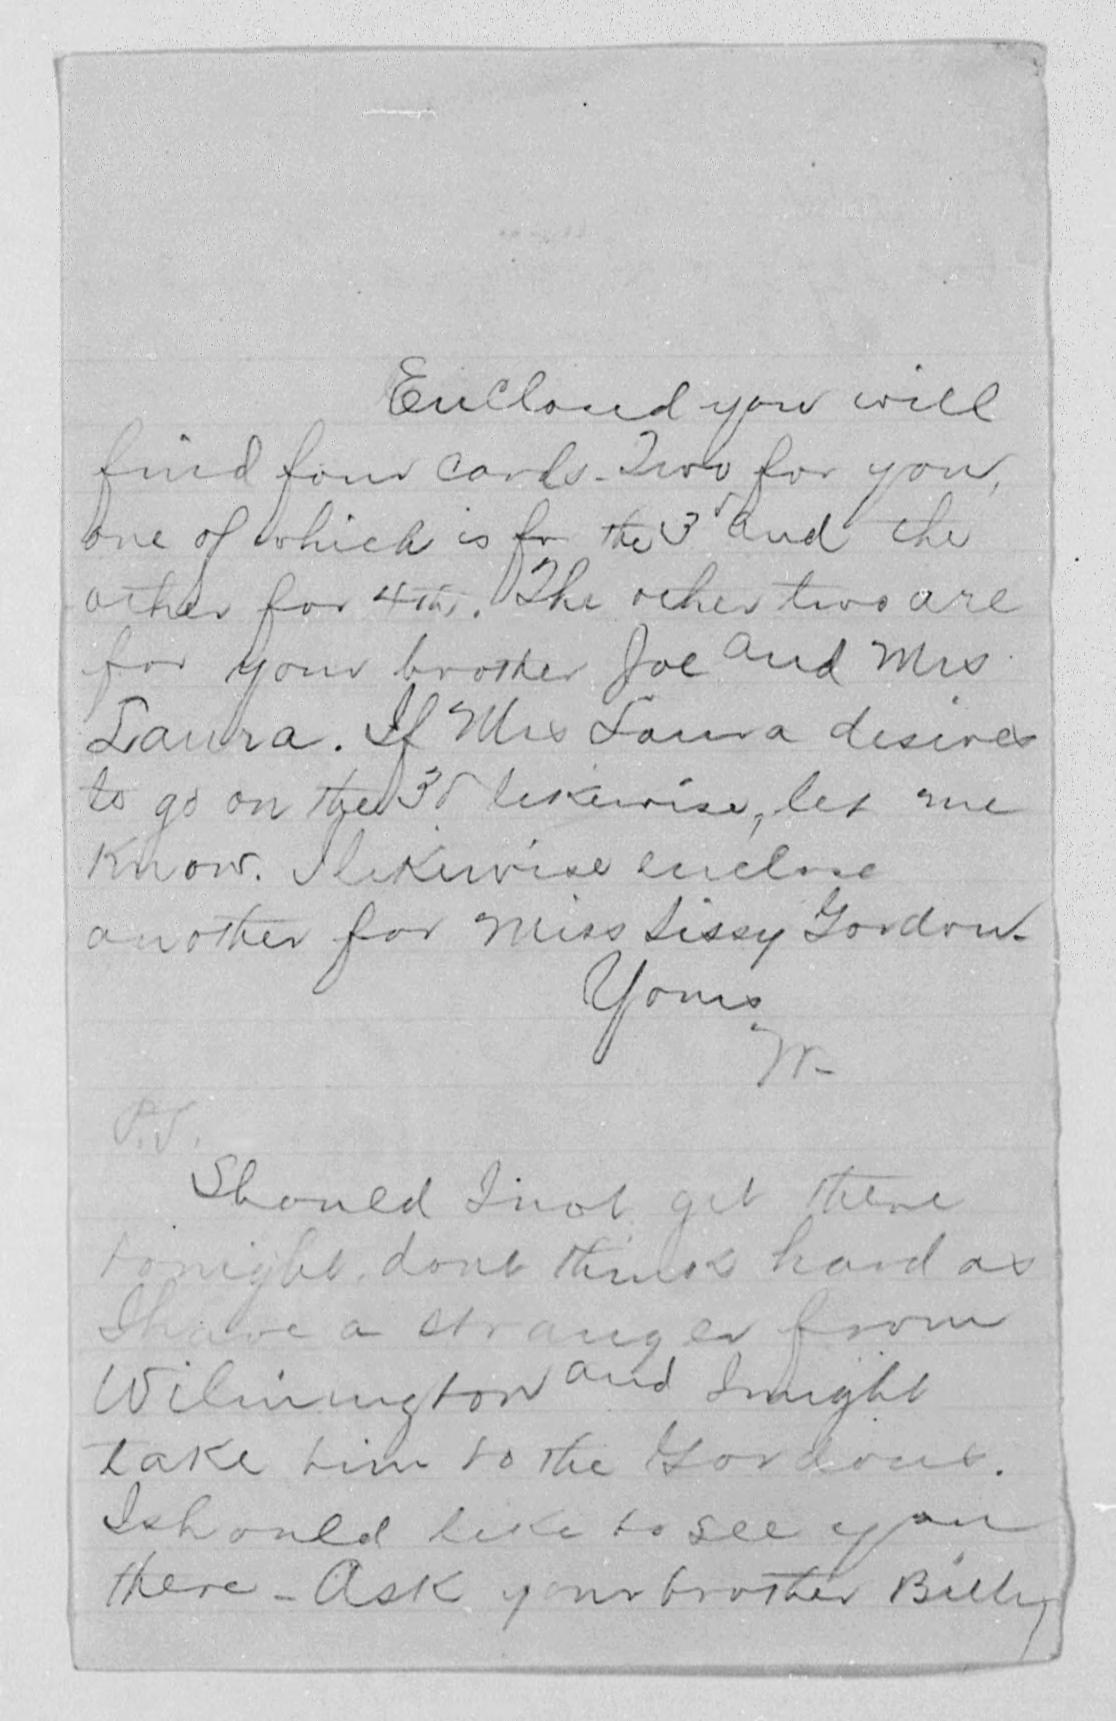 Enclosed you will
find four cards - Two for you,
one of which is for the 3d and the
other for 4th. The other two are
for your brother Joe and Mrs
Laura. If Mrs Laura desires
to go on the 3d likewise, let me
know. I likewise enclose
another for Miss Sissy Gordon -
Yours
W -
P.S.
Should I not get there
tonight, dont think hard as
I have a stranger from
Wilmington and I might
take him to the Gordons.
I should like to see you
there - Ask your brother Billy